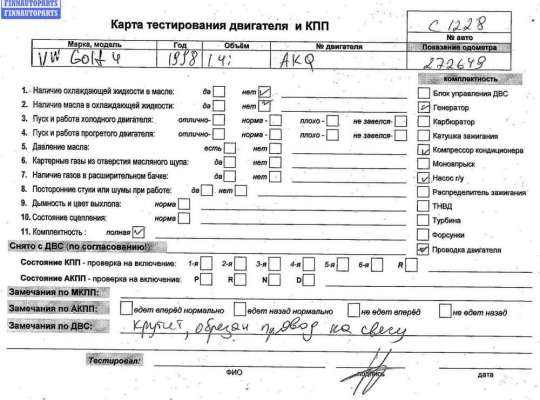 FINNAUTOPARTS
FINNAUTOPARTS
Карта тестирования двигателя и КПП
С 1228
№ авто
Марка, модель Год Объём № двигателя Показание одометра
VW Golf 4 1998 1.4i AKQ 272649
комплектность
1.- Наличие охлаждающей жидкости в масле: да нет
2.- Наличие масла в охлаждающей жидкости: да нет
3.- Пуск и работа холодного двигателя: отлично- норма - плохо - не завелся-
4.- Пуск и работа прогретого двигателя: отлично- норма - плохо - не завелся-
5.- Давление масла: есть нет
6.- Картерные газы из отверстия масляного щупа: да нет
7.- Наличие газов в расширительном бачке: да нет
8.- Посторонние стуки или шумы при работе: да нет
9.- Дымность и цвет выхлопа: норма
10.- Состояние сцепления: норма
11. Комплектность : полная
Блок управления ДВС
Генератор
Карбюратор
Катушка зажигания
Компрессор кондиционера
Моновпрыск
Насос г/у
Распределитель зажигания
ТНВД
Турбина
Форсунки
Проводка двигателя
Снято с ДВС (по согласованию!):
Состояние КПП - проверка на включение: 1-я 2-я 3-я 4-я 5-я 6-я R
Состояние АКПП - проверка на включение: P R N D
Замечания по МКПП:
Замечания по АКПП: едет вперёд нормально едет назад нормально не едет вперёд не едет назад
Замечания по ДВС: крутит, обрезан провод на свечу
Тестировал:
ФИО подпись дата